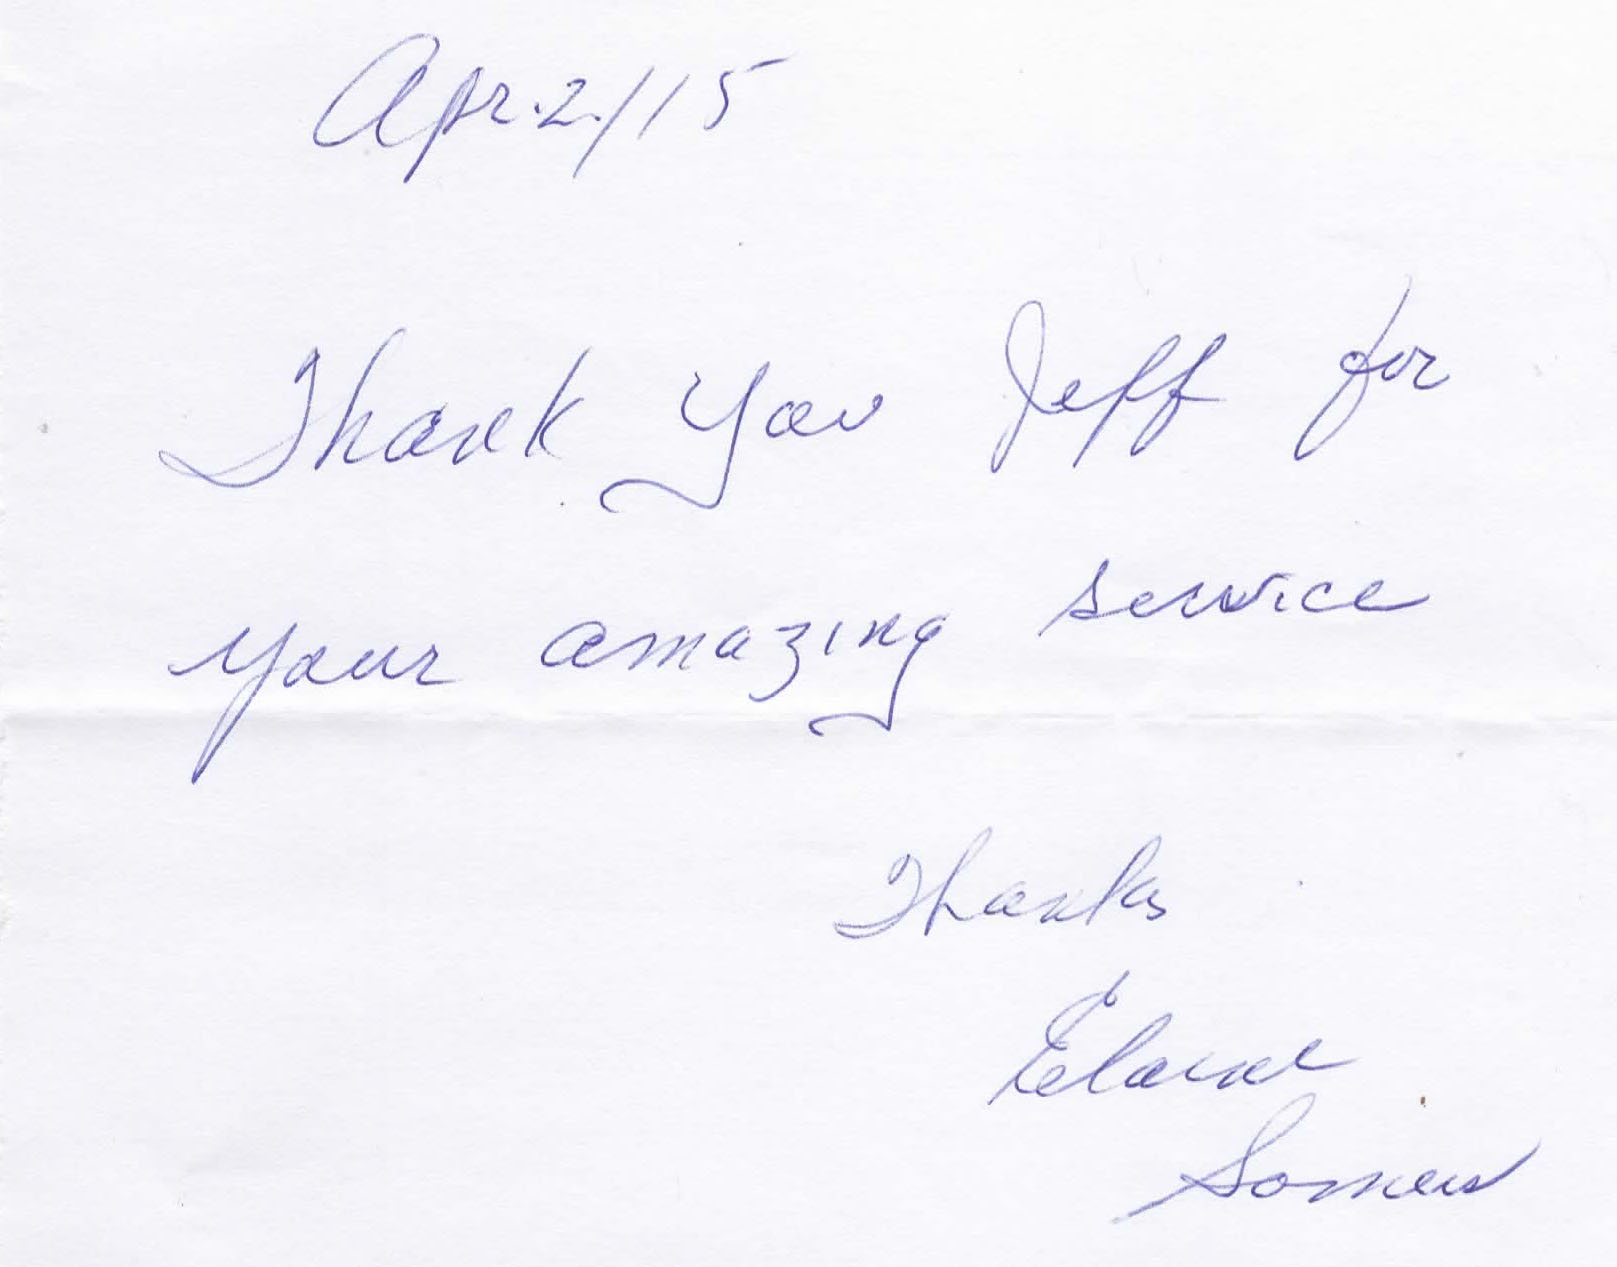 Apr. 2/15
Thank You Jeff for
your amazing service
Thanks
Elaine